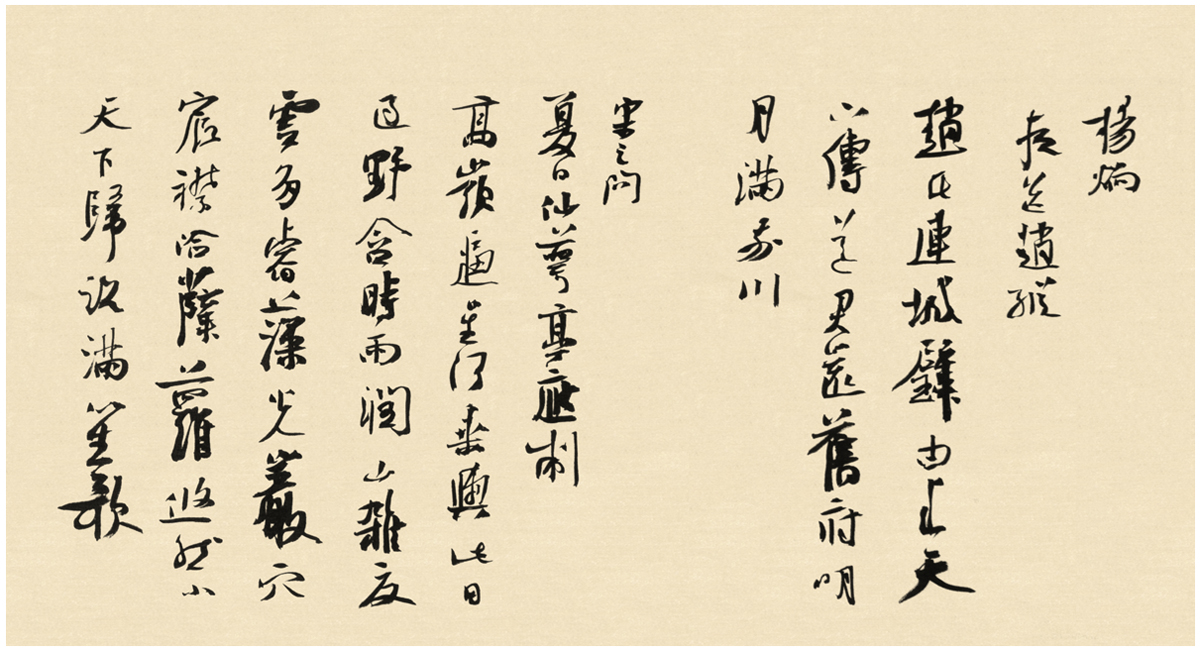 楊炯
夜送趙縱
趙氏連城璧由来天
下傳送君還舊府明
月滿前川
宋之問
夏日仙萼亭應制
高嶺逼星河乘輿此日
過野含時雨潤山雜夏
雲多睿藻光巖穴
宸襟洽薜蘿悠然小
天下歸路滿笙歌